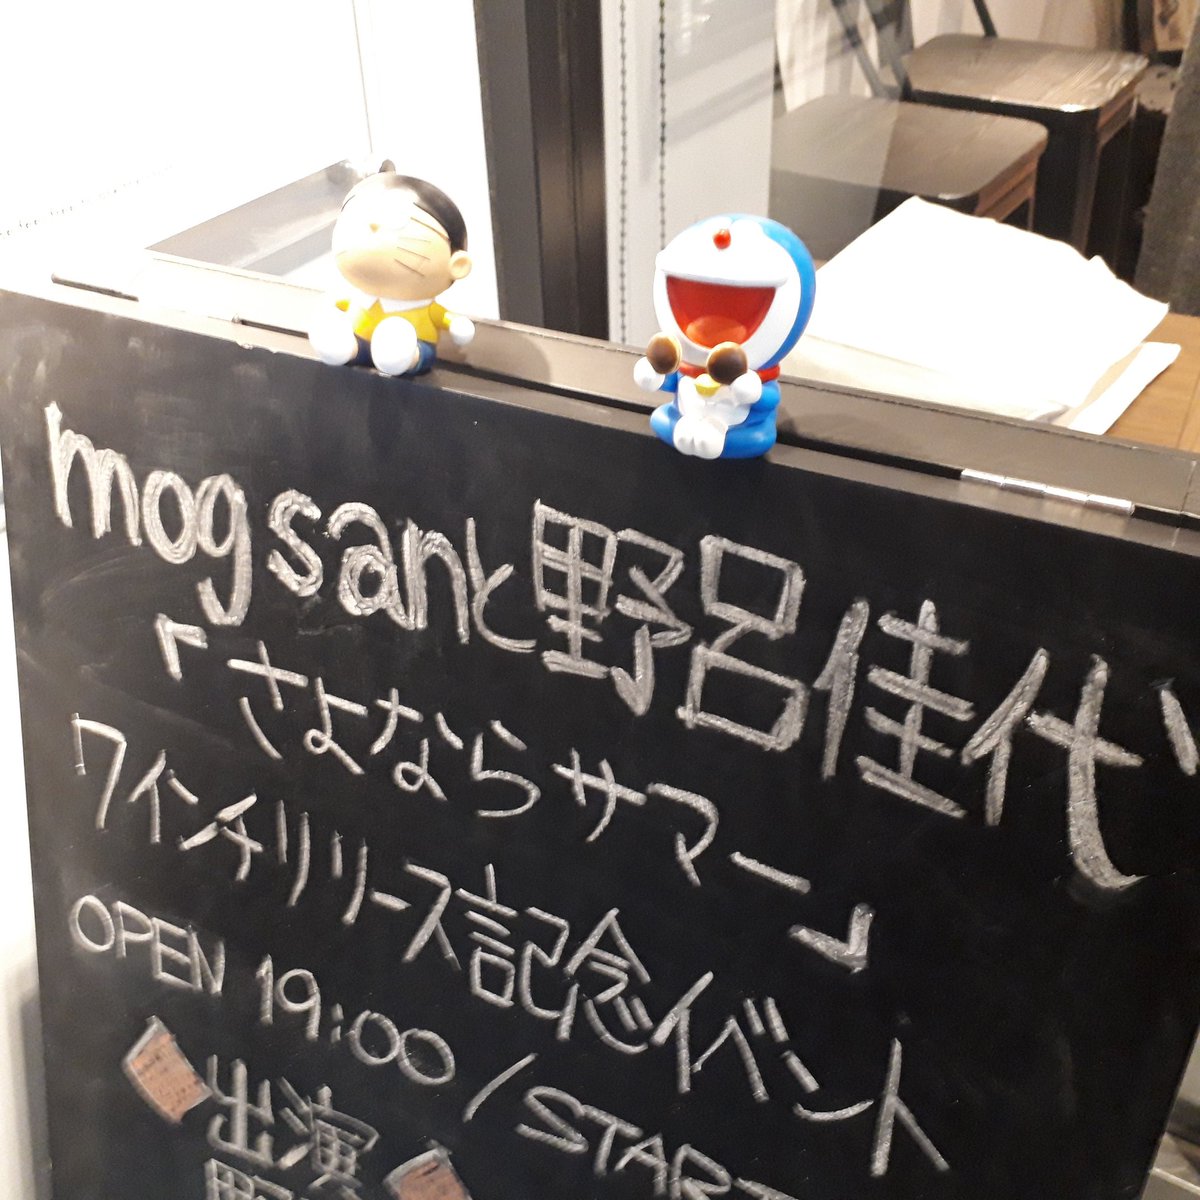 mogsanと野呂佳代
「さよならサマー」
7インチリリース記念イベント
OPEN 19:00 / START
出演